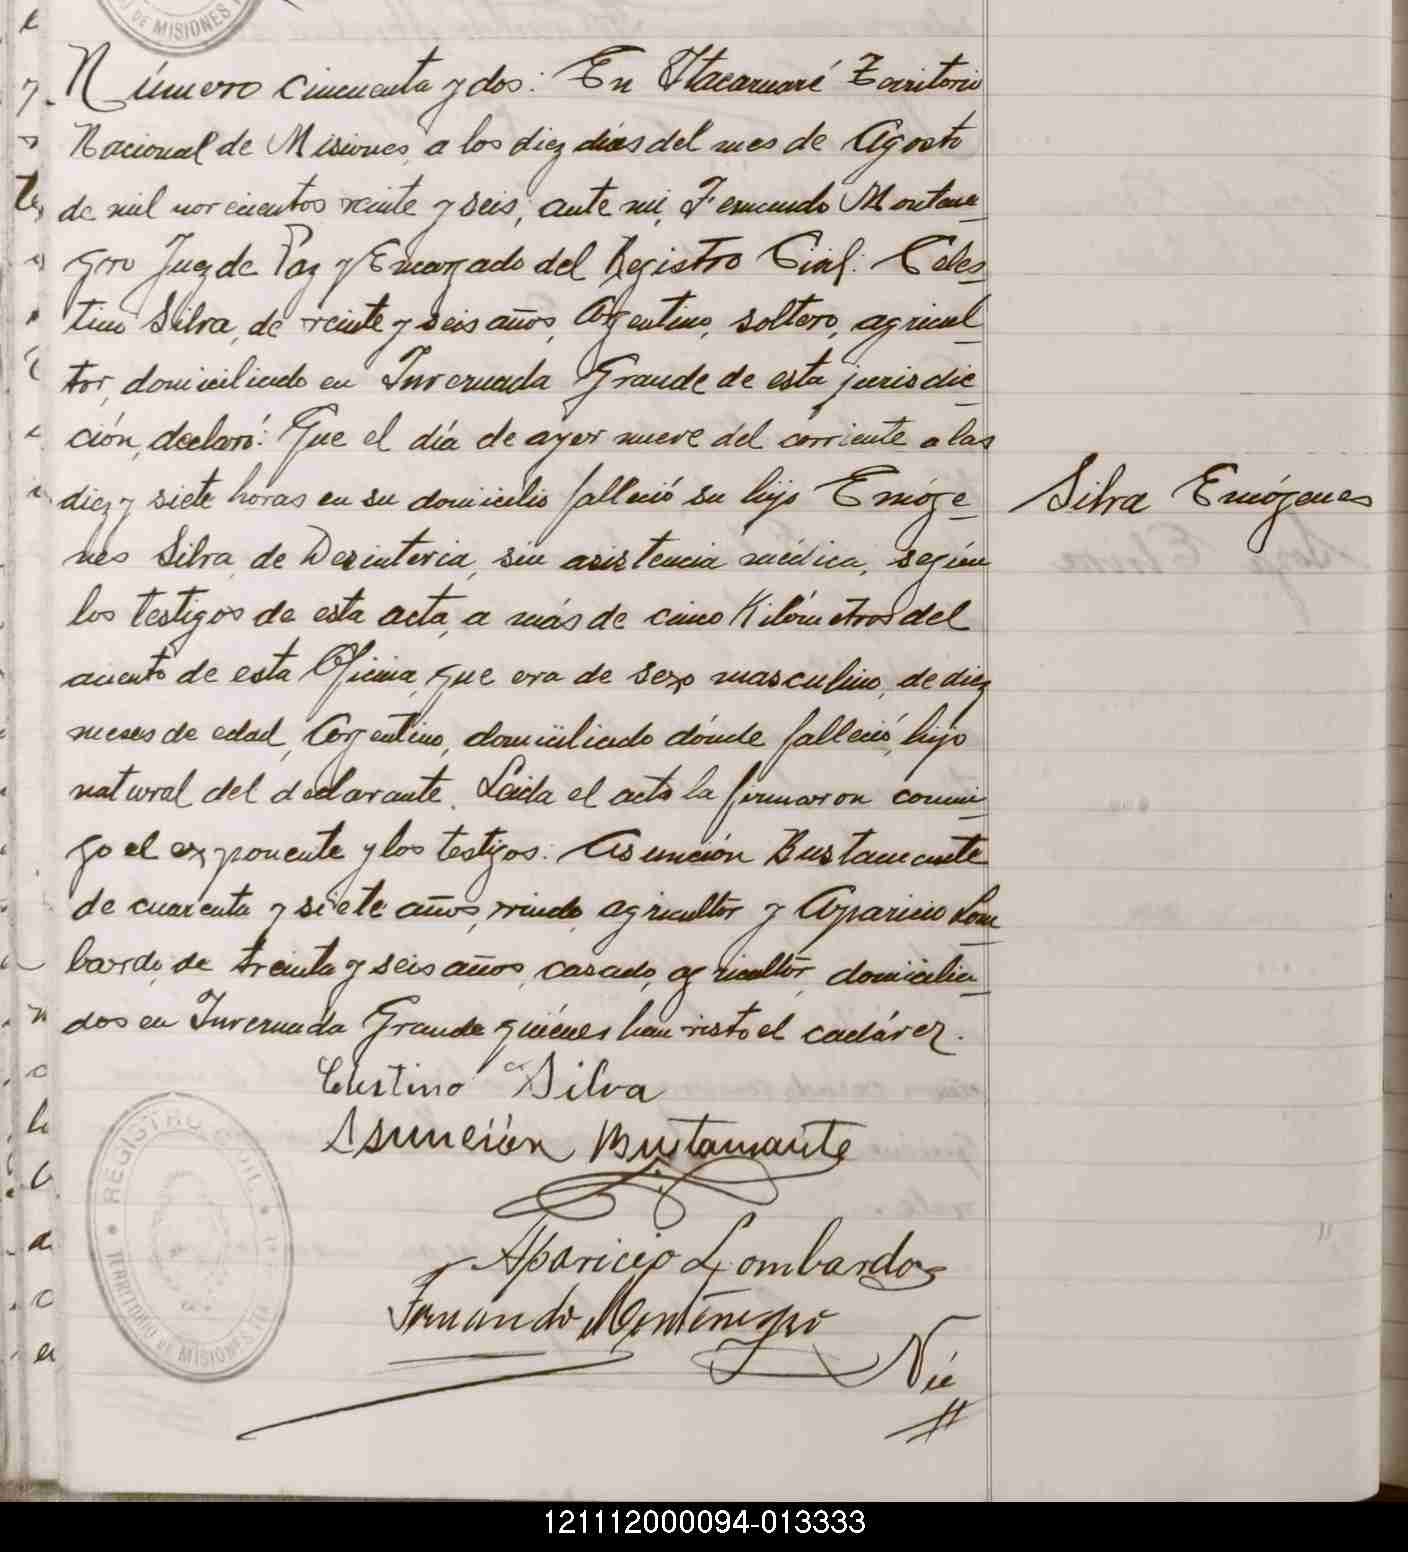 DE MISIONES
Número cincuenta y dos: En Itacaruaré Territorio
Nacional de Misiones, a los diez días del mes de Agosto
de mil novecientos veinte y seis, ante mi, Fernando Montene_
gro Juez de Paz y Encargado del Registro Civil: Celes_
tino Silva, de veinte y seis años, Argentino, soltero, agricul_
tor, domiciliado en Invernada Grande de esta jurisdic_
ción, declaró: Que el día de ayer nueve del corriente a las
diez y siete horas en su domicilio falleció su hijo Emóge_
nes Silva, de Desinteria, sin asistencia médica, según
los testigos de esta acta, a más de cinco Kilómetros del
asiento de esta Oficina, que era de sexo masculino, de diez
meses de edad, Argentino, domiciliado dónde falleció, hijo
natural del declarante. Leida el acta la firmaron conmi_
go el exponente y los testigos: Asunción Bustamante
de cuarenta y siete años, viudo, agricultor y Aparicio Lom_
bardo, de treinta y seis años, casado, agricultor, domicilia_
dos en Invernada Grande quiénes han visto el cadáver.
Silva Emógenes
Celestino Silva
Asunción Bustamante
Aparicio Lombardo
Fernando Montenegro
REGISTRO CIVIL
TERRITORIO DE MISIONES
121112000094-013333